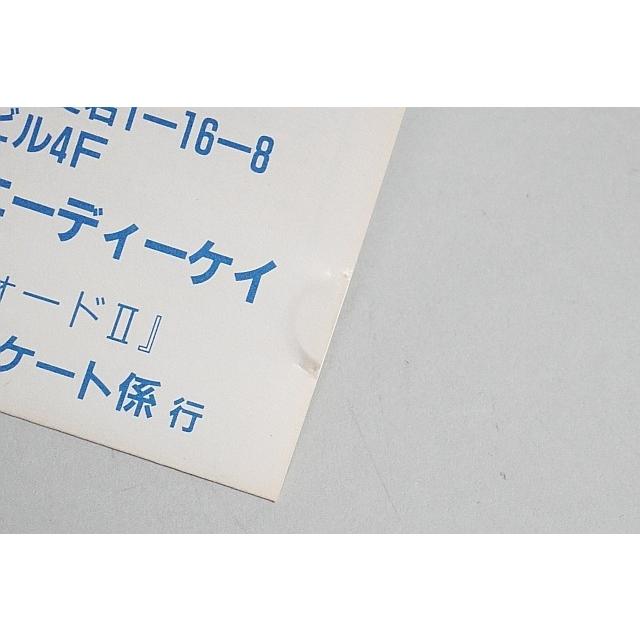 石1-16-8
ビル4F
エーディーケイ
ォードⅡ』
ケート係 行